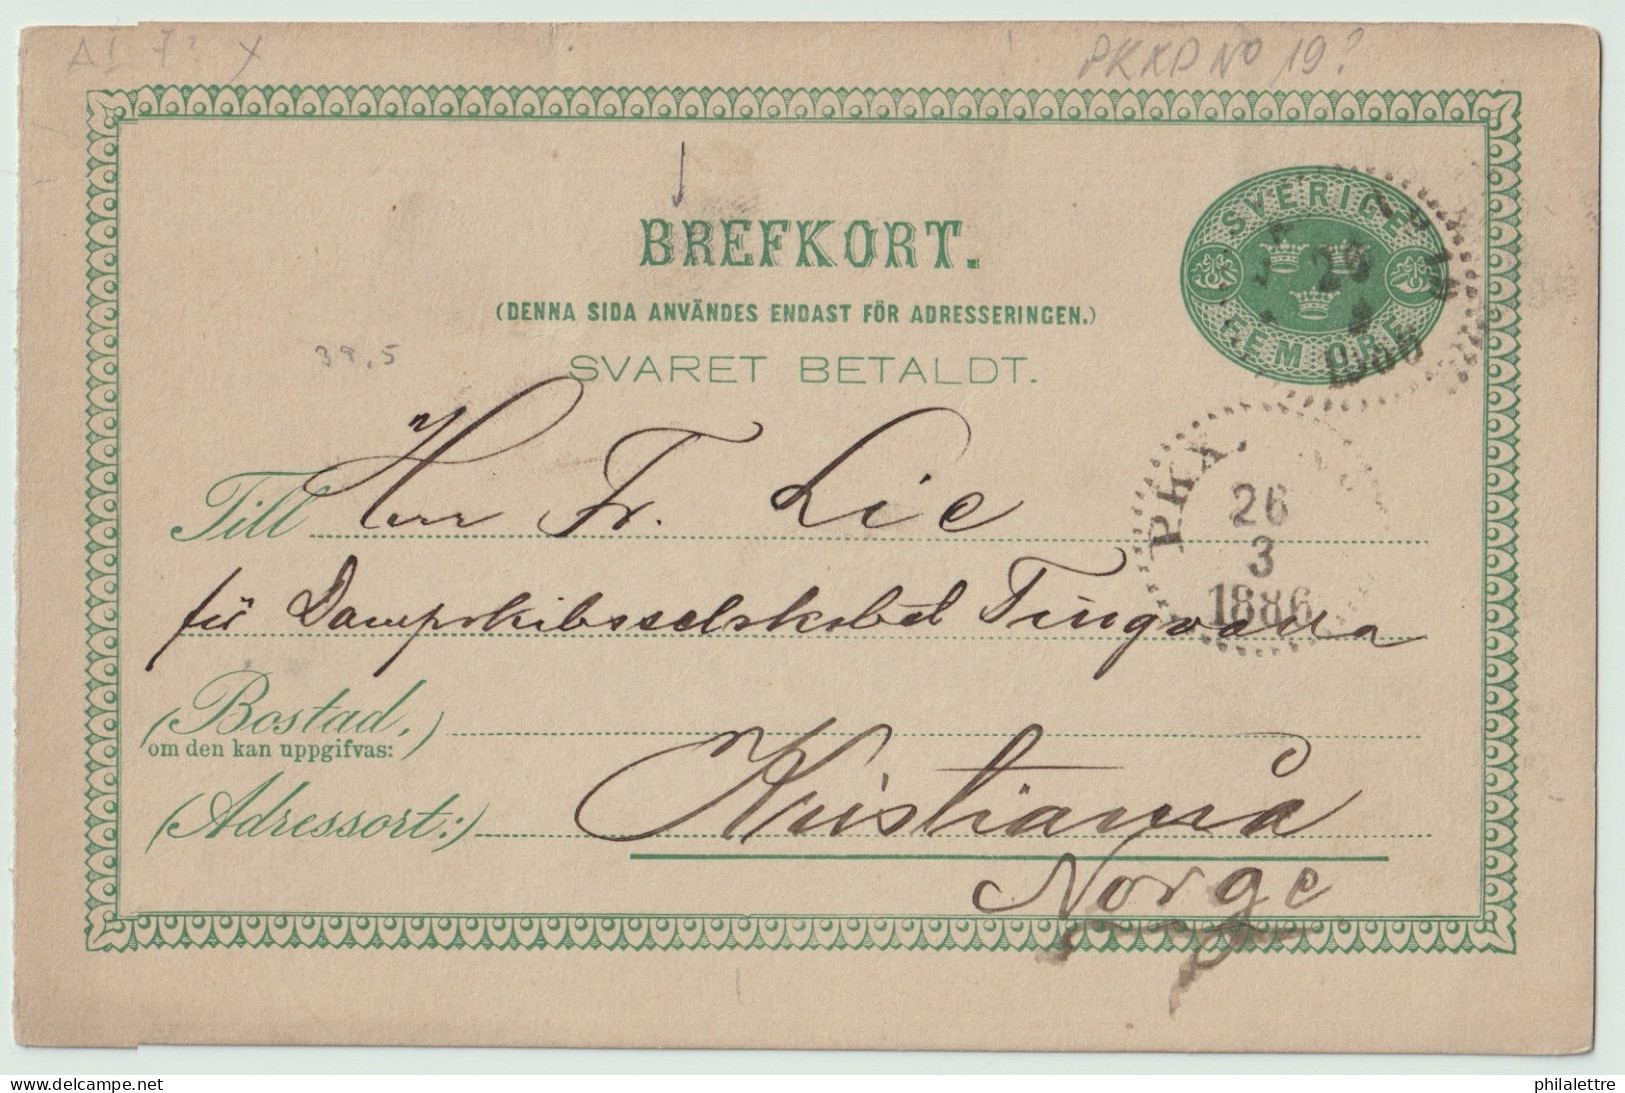 PKXP No 19?
BREFKORT.
SVERIGE
FEM ÖRE
(DENNA SIDA ANVÄNDES ENDAST FÖR ADRESSERINGEN.)
39,5
SVARET BETALDT.
Till Herr Fr. Lie
PKX.
26
3
1886
för Dampskibsselskabet Tingvalla
(Bostad,)
om den kan uppgifvas:
(Adressort:) Kristiania
Norge
delcampe.net
philalettre